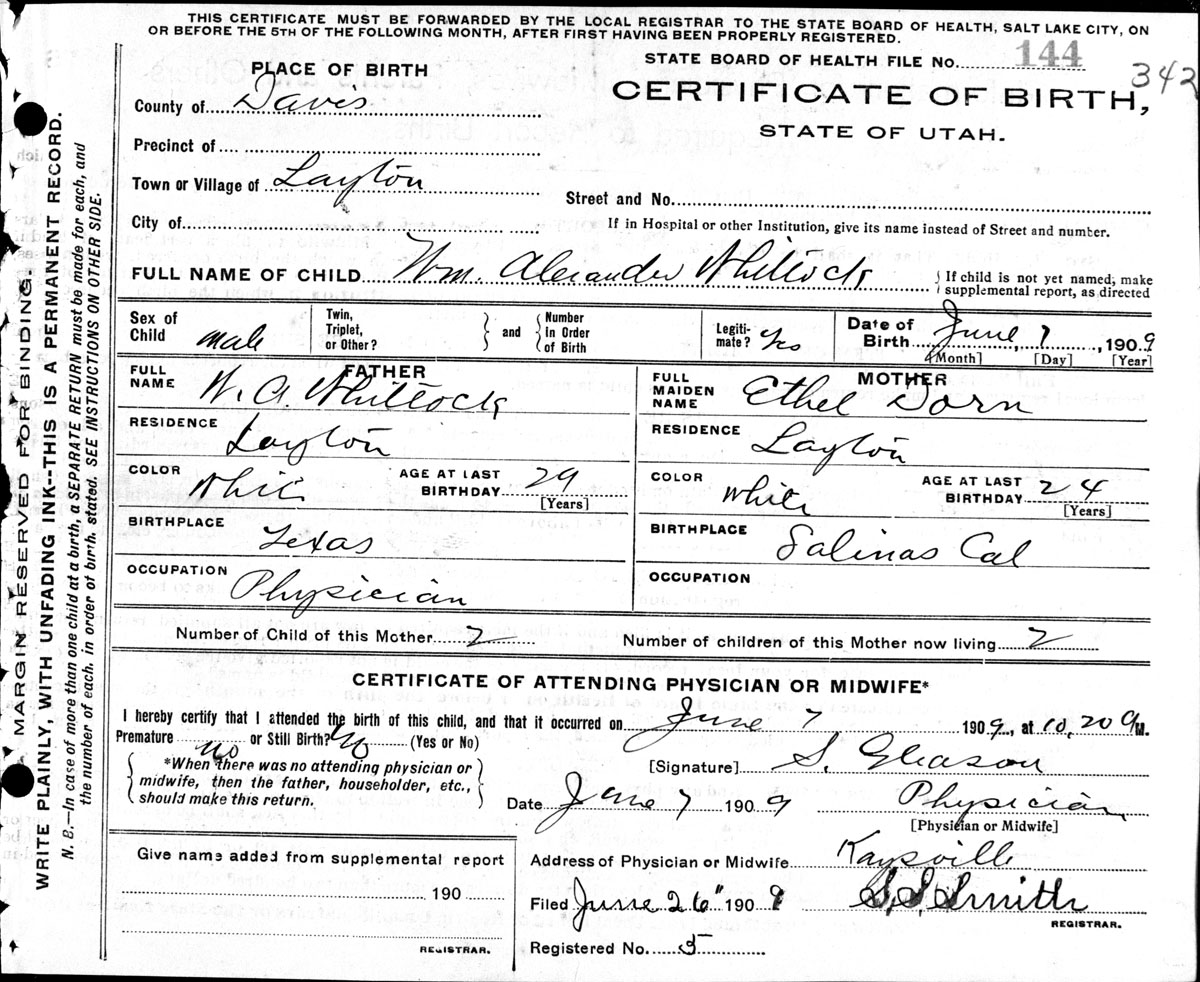 THIS CERTIFICATE MUST BE FORWARDED BY THE LOCAL REGISTRAR TO THE STATE BOARD OF HEALTH, SALT LAKE CITY, ON
OR BEFORE THE 5TH OF THE FOLLOWING MONTH, AFTER FIRST HAVING BEEN PROPERLY REGISTERED.
STATE BOARD OF HEALTH FILE No. 144
342
PLACE OF BIRTH
CERTIFICATE OF BIRTH,
STATE OF UTAH.
County of Davis
Precinct of
Town or Village of Layton
Street and No.
City of
If in Hospital or other Institution, give its name instead of Street and number.
FULL NAME OF CHILD Wm. Alexander Whitlock
{ If child is not yet named, make
supplemental report, as directed
Sex of
Child male
Twin,
Triplet,
or Other?
and
Number
in Order
of Birth
Legiti-
mate? Yes
Date of
Birth June 7, 1909
[Month] [Day] [Year]
FATHER
FULL
NAME W. A. Whitlock
RESIDENCE Layton
COLOR White
AGE AT LAST
BIRTHDAY 29
[Years]
BIRTHPLACE Texas
OCCUPATION Physician
MOTHER
FULL
MAIDEN
NAME Ethel Dorn
RESIDENCE Layton
COLOR White
AGE AT LAST
BIRTHDAY 24
[Years]
BIRTHPLACE Salinas Cal
OCCUPATION
Number of Child of this Mother 2
Number of children of this Mother now living 2
CERTIFICATE OF ATTENDING PHYSICIAN OR MIDWIFE*
I hereby certify that I attended the birth of this child, and that it occurred on June 7 1909, at 10,20 a M.
Premature no or Still Birth? No (Yes or No)
*When there was no attending physician or
midwife, then the father, householder, etc.,
should make this return.
[Signature] S. Gleason
Date June 7 1909 Physician
[Physician or Midwife]
Give name added from supplemental report
190
REGISTRAR.
Address of Physician or Midwife Kaysville
Filed June 26" 1909 S. S. Smith
REGISTRAR.
Registered No. 5
MARGIN RESERVED FOR BINDING
WRITE PLAINLY, WITH UNFADING INK--THIS IS A PERMANENT RECORD.
N. B.—In case of more than one child at a birth, a SEPARATE RETURN must be made for each, and
the number of each, in order of birth, stated. SEE INSTRUCTIONS ON OTHER SIDE.